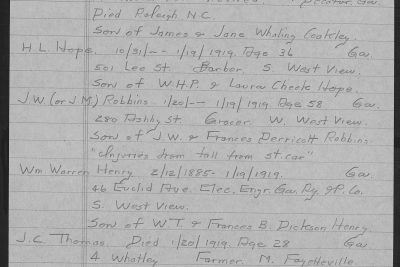 Decatur, Ga.
Died Raleigh N.C.
Son of James & Jane Whaling Coakley.
H. L. Hope. 10/31/-- - 1/19/1919. Age 36 Ga.
501 Lee St. Barber. S. West View.
Son of W.H.P. & Laura Cheek Hope.
J.W. (or J.M.) Robbins. 1/20/-- 1/19/1919 Age 58 Ga.
280 Ashby St. Grocer. W. West View.
Son of J.W. & Frances Derricott Robbins.
"Injuries from fall from st. car"
Wm. Warren Henry. 2/12/1885- 1/19/1919. Ga.
46 Euclid Ave. Elec. Engr. Ga. Ry. & P. Co.
S. West View.
Son of W.T. & Frances B. Dickson Henry.
J.C. Thomas. Died 1/20/1919. Age 28 Ga.
4 Whatley Farmer. M. Fayetteville